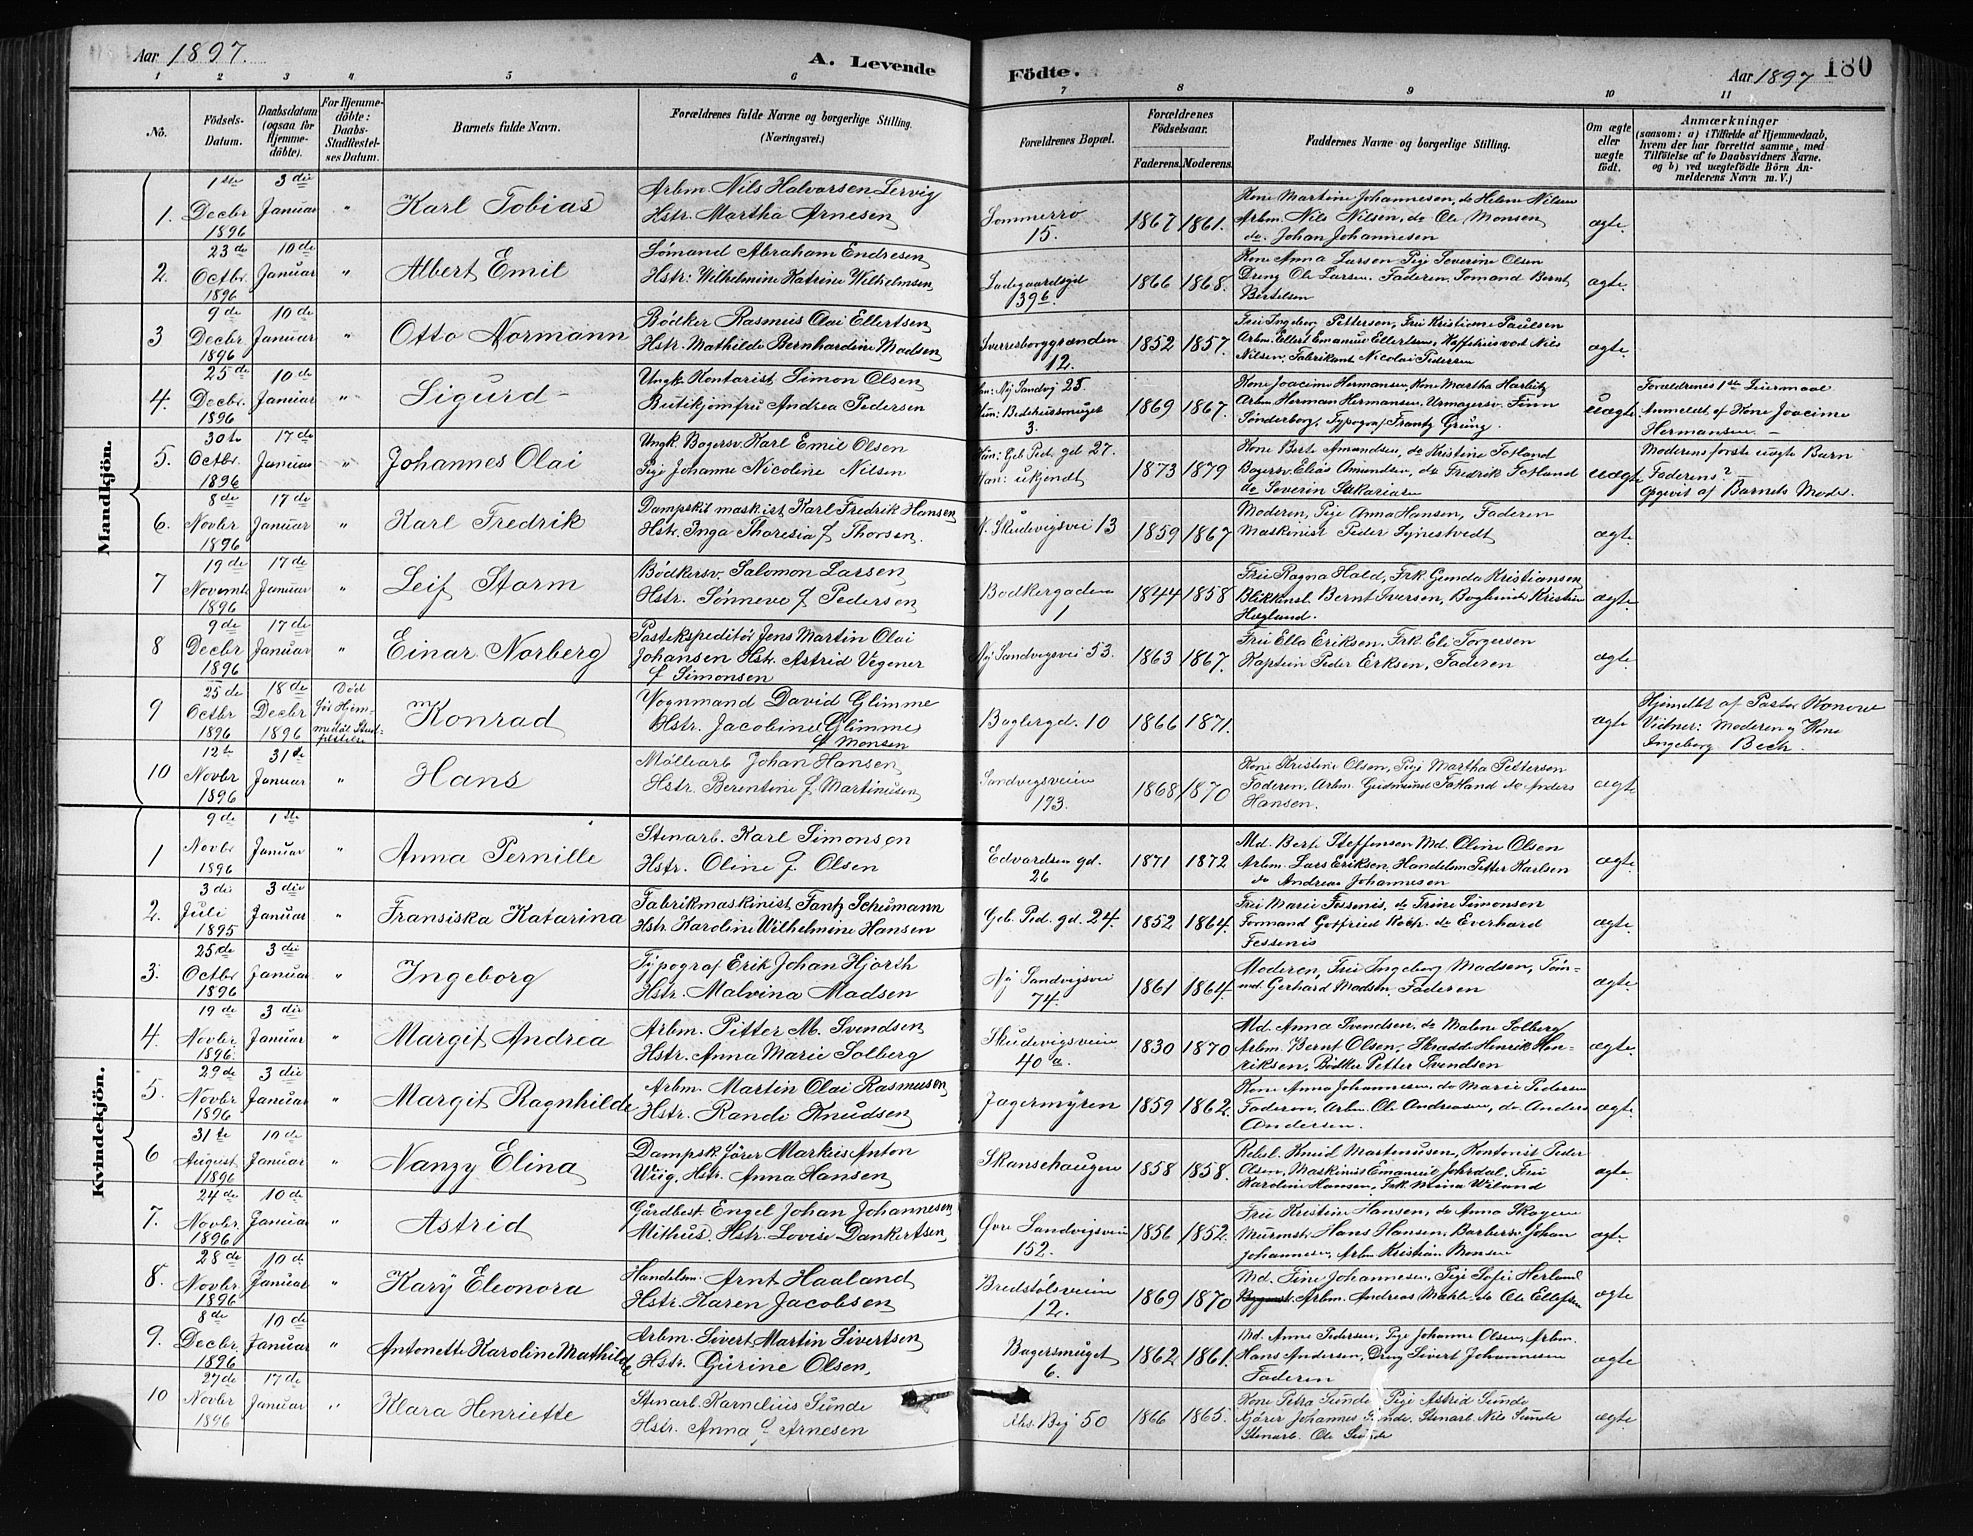 Aar 1897.
A. Levende
Födte.
Aar 1897
180
1 2 3 4 5 6 7 8 9 10 11
No.
Födsels-
Datum.
Daabsdatum
(ogsaa for
Hjemme-
döbte).
For Hjemme-
döbte:
Daabs-
Stadfæstel-
ses Datum.
Barnets fulde Navn.
Forældrenes fulde Navne og borgerlige Stilling.
(Næringsvei.)
Forældrenes Bopæl.
Forældrenes
Födselsaar.
Faderens. Moderens.
Faddernes Navne og borgerlige Stilling.
Om ægte
eller
uægte
födt.
Anmærkninger
(saasom: a) i Tilfælde af Hjemmedaab,
hvem der har forrettet samme, med
Tilföielse af to Daabsvidners Navne.
og b) ved uægtefödte Börn An-
melderens Navn m. V.)
Mandkjön.
1. 1ste Decbr 1896 3die Januar " Karl Tobias
Arbm. Nils Halvorsen Lervig
Hstr. Martha Arnesen
Sommerro
15.
1867 1861.
Kone Martine Johannesen, do Helene Nilsen
Arbm. Nils Nilsen, do Ole Monsen
do. Johan Johannesen
ægte.
2. 23de Octbr. 1896 10de Januar " Albert Emil
Sømand Abraham Endresen
Hstr: Wilhelmine Katrine Wilhelmsen
Ladegaardsgd
39b.
1866 1868.
Kone Anna Larsen Pige Severine Olsen
Dreng Ole Larsen. Faderen. Sømand Bernt
Bertelsen
ægte.
3 9de Decbr. 1896 10de Januar " Otto Normann
Bødker Rasmus Olai Ellertsen
Hstr. Mathilde Bernhardine Madsen
Sverresborggrænden
12.
1852 1857.
Fru Ingeborg Pettersen, Fru Kristiane Paulsen
Arbm. Ellert Emanuel Ellertsen, Nils
Nilsen, Fabrikant Nicolai Pedersen
ægte.
4. 25de Decbr. 1896 10de Januar " Sigurd
Ungk. Kontorist Simon Olsen
Butikjomfru Andrea Pedersen
Han: Ny Sandvig 25.
Hun: Bedehussmuget
3.
1869 1867.
Kone Joacime Hermansen, Kone Martha Harlitz
Arbm. Herman Hermansen, Urmagersv. Finn
Sønderborg, Typograf Frantz Grung.
uægte.
Forældrenes 1ste Leiermaal
Anmeldt af Kone Joacime
Hermansen
5. 30te Octbr. 1896 17de Januar " Johannes Olai
Ungk. Bagersv. Karl Emil Olsen
Pige Johanne Nicoline Nilsen
Hun: Geb. Ped. gd 27.
Han: ukjendt
1873 1879
Kone Berte Amundsen, do Kristine Fotland
Bagersv. Elias Amundsen, do Fredrik Fotland
do Severin Sakariasen
uægte
Moderens første uægte Barn
Faderens?
Opgivet af Barnets Moder.
6. 8de Novbr 1896 17de Januar " Karl Fredrik
Dampskibsmaskist Karl Fredrik Hansen
Hstr. Inga Theresia f. Thorsen.
N. Skudevigsvei 13
1859 1867
Moderen, Pige Anna Hansen, Faderen
Maskinist Peder Synestvedt
ægte.
7 19de Novembr 1896 17de Januar " Leif Storm
Bødkersv. Salomon Larsen
Hstr. Sønneve f. Pedersen
Bødkergaden
1
1844 1858
Fru Ragna Hald, Frk. Gunda Kristiansen
Blikkensl. Bernt Iversen, Kristian
Haugland.
ægte
8 9de Decbr 1896 17de Januar " Einar Norberg
Postekspeditør Jens Martin Olai
Johansen Hstr. Astrid Vegener
f. Simonsen
Ny Sandvigsvei 53.
1863 1867.
Fru Ella Eriksen. Frk. Eli Torgersen
Kaptein Peder Eriksen, Faderen
ægte.
9 25de Octbr 1896 18de Decbr 1896
Død
før Hjem-
medøbt Stad-
fæstelse
Konrad
Vognmand David Glimme
Hstr. Jacobine Glimme
f. Monsen
Baglergd. 10
1866 1871.
ægte
Hjemdbt. af Pastor Konow
Vidner: Moderen og Kone
Ingeborg Bech.
10 12te Novbr 1896 31te Januar " Hans
Møllearb. Johan Hansen
Hstr. Berentine f. Martinusen
Sandvigsveien
173.
1868 1870
Kone Kristine Olsen, Pige Martha Pettersen
Faderen. Arbm. Gudmund Fotland do Anders
Hansen.
ægte
Kvindekjön.
1 9de Novbr 1896 1ste Januar " Anna Pernille
Stenarb. Karl Simonsen
Hstr. Oline f. Olsen
Edvardsen gd.
26
1871 1872
Md. Berte Steffensen Md. Oline Olsen
Arbm. Lars Eriksen, Handelsm Petter Karlsen
do Andreas Johannesen
ægte.
2. 3die Juli 1895 3die Januar " Fransiska Katarina
Fabrikmaskinist Fantz Schumann
Hstr. Karoline Wilhelmine Hansen
Geb. Ped. gd. 24.
1852 1864.
Fru Marie Fessenis, do Trine Simonsen
Formand Gotfried Koch. do Everhard
Fessenis
ægte.
3. 25de Octbr 1896 3die Januar " Ingeborg
Typograf Erik Johan Hjorth
Hstr. Malvina Madsen
Ny Sandvigsvei
74.
1861 1864.
Moderen, Fru Ingeborg Madsen, Tøm-
md. Gerhard Madsen, Faderen
ægte.
4. 19de Novbr 1896. 3die Januar " Margit Andrea
Arbm. Pitter M. Svendsen
Hstr. Anna Marie Solberg
Skudevigsveien
40a.
1830 1870
Md. Anna Svendsen, do Malene Solberg
Arbm. Bernt Olsen, Skrædder Henrik Hen-
riksen, Bødker Petter Svendsen
ægte.
5. 29de Novbr 1896 3die Januar " Margit Ragnhilde
Arbm. Martin Olai Rasmusen
Hstr. Randi Knudsen
Jægermyren
1859 1862.
Kone Anna Johannesen, do Marie Pedersen
Faderen, Arbm. Ole Andreasen, do Anders
Andersen.
ægte.
6 31te August 1896 10de Januar " Nanzy Elina
Dampsk. fører Markus Anton
Wiig. Hstr. Anna Hansen
Skansehaugen
1858 1858.
Rebsl. Knud Martinusen, Kontorist Peder
Olsen, Maskinist Emanuel Johrdal, Fru
Karoline Hansen, Frk. Mina Wiland
ægte.
7. 24de Novbr. 1896 10de Januar " Astrid
Gårdbest. Engel Johan Johannesen
Mithus. Hstr. Lovise Dankertsen
Øvre Sandvigsvei
152.
1856 1852.
Fru Kristine Hansen, do Anna Skagen
Murmst. Hans Hansen, Barbersv. Johan
Johannesen, Arbm Kristian Monsen
ægte
8. 28de Novbr. 1896 10de Januar " Kary Eleonora
Handelsm. Arnt Haaland
Hstr. Karen Jacobsen
Bredstølsveien
12.
1869 1870
Md. Tine Johannesen, Pige Sofie Herland
Arbm. Andreas Mæhle do Ole Ellefsen
ægte
9. 8de Decbr. 1896 10de Januar " Antonette Karoline Mathilde
Arbm. Sivert Martin Sivertsen
Hstr. Gurine Olsen,
Bagersmuget
6.
1862 1861.
Md. Anne Pedersen, Pige Johanne Olsen, Arbm.
Hans Andersen, Dreng Sivert Johannesen
Faderen
ægte
10 27de Novbr 1896 17de Januar " Klara Henriette
Stenarb. Kornelius Sunde
Hstr. Anna f. Arnesen
Abs. Bg 50
1866 1865.
Kone Petra Sunde, Pige Astrid Sunde
Kjører Johannes Sunde. Stenarb. Nils Sunde
Stenarb. Ole Sunde
ægte